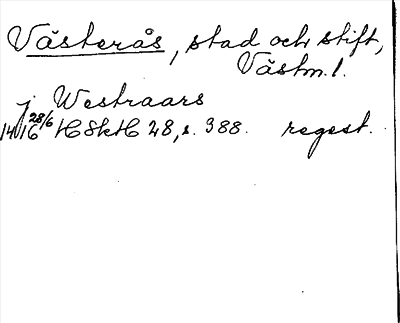 Västerås, stad och stift,
Västm. l.
j Westraars
1416 28/6 HSkH 28, s. 388. regest.